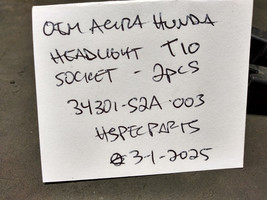 OEM ACURA HONDA
HEADLIGHT T10
SOCKET - 2PCS
34301-S2A-003
HSPECPARTS
3-1-2025